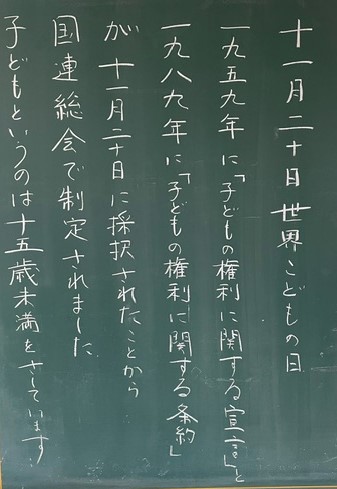 十一月二十日 世界こどもの日
一九五九年に「子どもの権利に関する宣言」と
一九八九年に「子どもの権利に関する条約」
が十一月二十日に採択されたことから
国連総会で制定されました
子どもというのは十五歳未満をさしています。